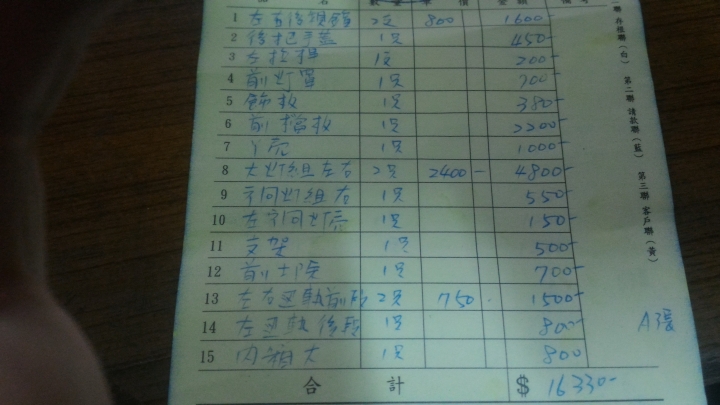 名 數量 單價 金額 備考
1 左右後視鏡 2支 800 1600-
2 後把手蓋 1只 450-
3 左拉桿 1支 200-
4 前灯罩 1只 700-
5 飾板 1只 380-
6 前擋板 1只 2200-
7 1只 1000-
8 大灯組左右 2只 2400- 4800-
9 方向灯組右 1只 550-
10 左方向灯 1只 150-
11 支架 1只 500-
12 前土除 1只 700-
13 左右 前段 2只 750- 1500-
14 左 後段 1只 800-
15 內箱大 1只 800
合計 $ 16330-
A張
聯 存根聯(白) 第二聯 請款聯(藍) 第三聯 客戶聯(黃)